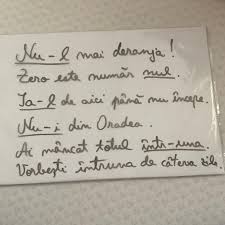 Nu-l mai deranja!
Zero este număr nul.
Ia-l de aici până nu începe.
Nu-i din Oradea.
Ai mâncat totul într-una.
Vorbești întruna de câteva zile.